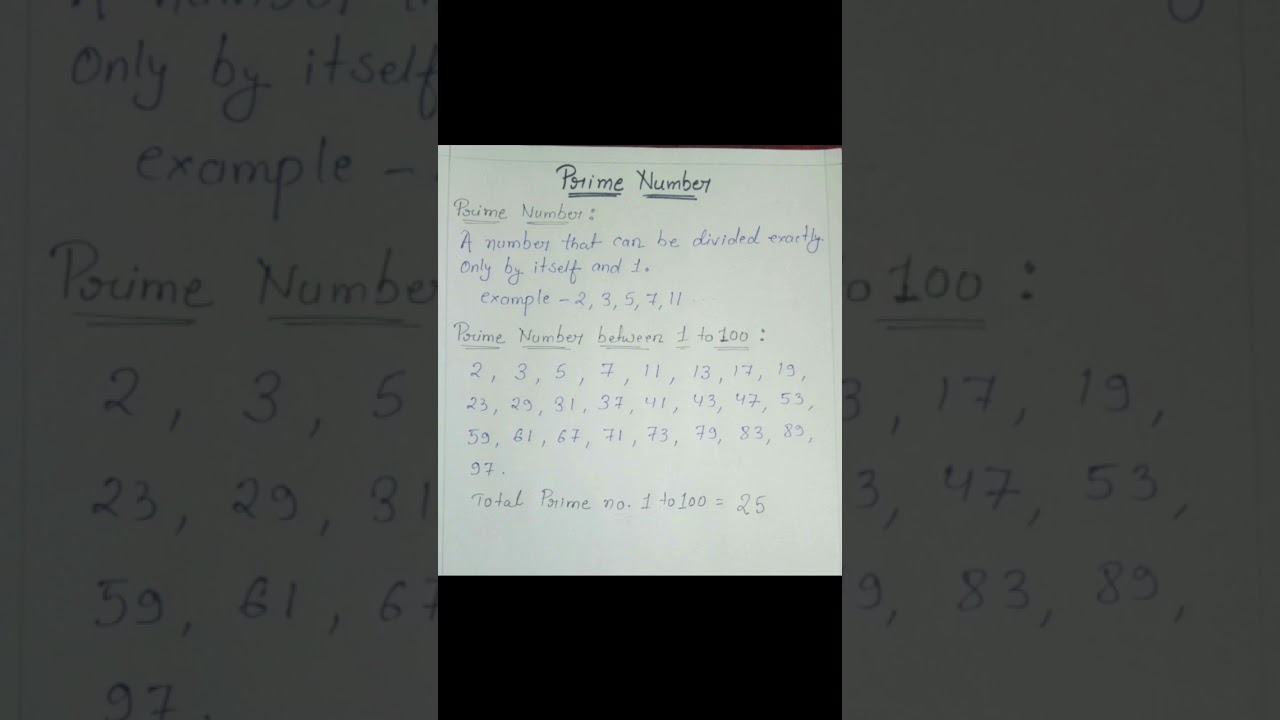 Prime Number
Prime Number:
A number that can be divided exactly
Only by itself and 1.
example - 2, 3, 5, 7, 11 ....
Prime Number between 1 to 100 :
2, 3, 5, 7, 11, 13, 17, 19,
23, 29, 31, 37, 41, 43, 47, 53,
59, 61, 67, 71, 73, 79, 83, 89,
97.
Total Prime no. 1 to 100 = 25